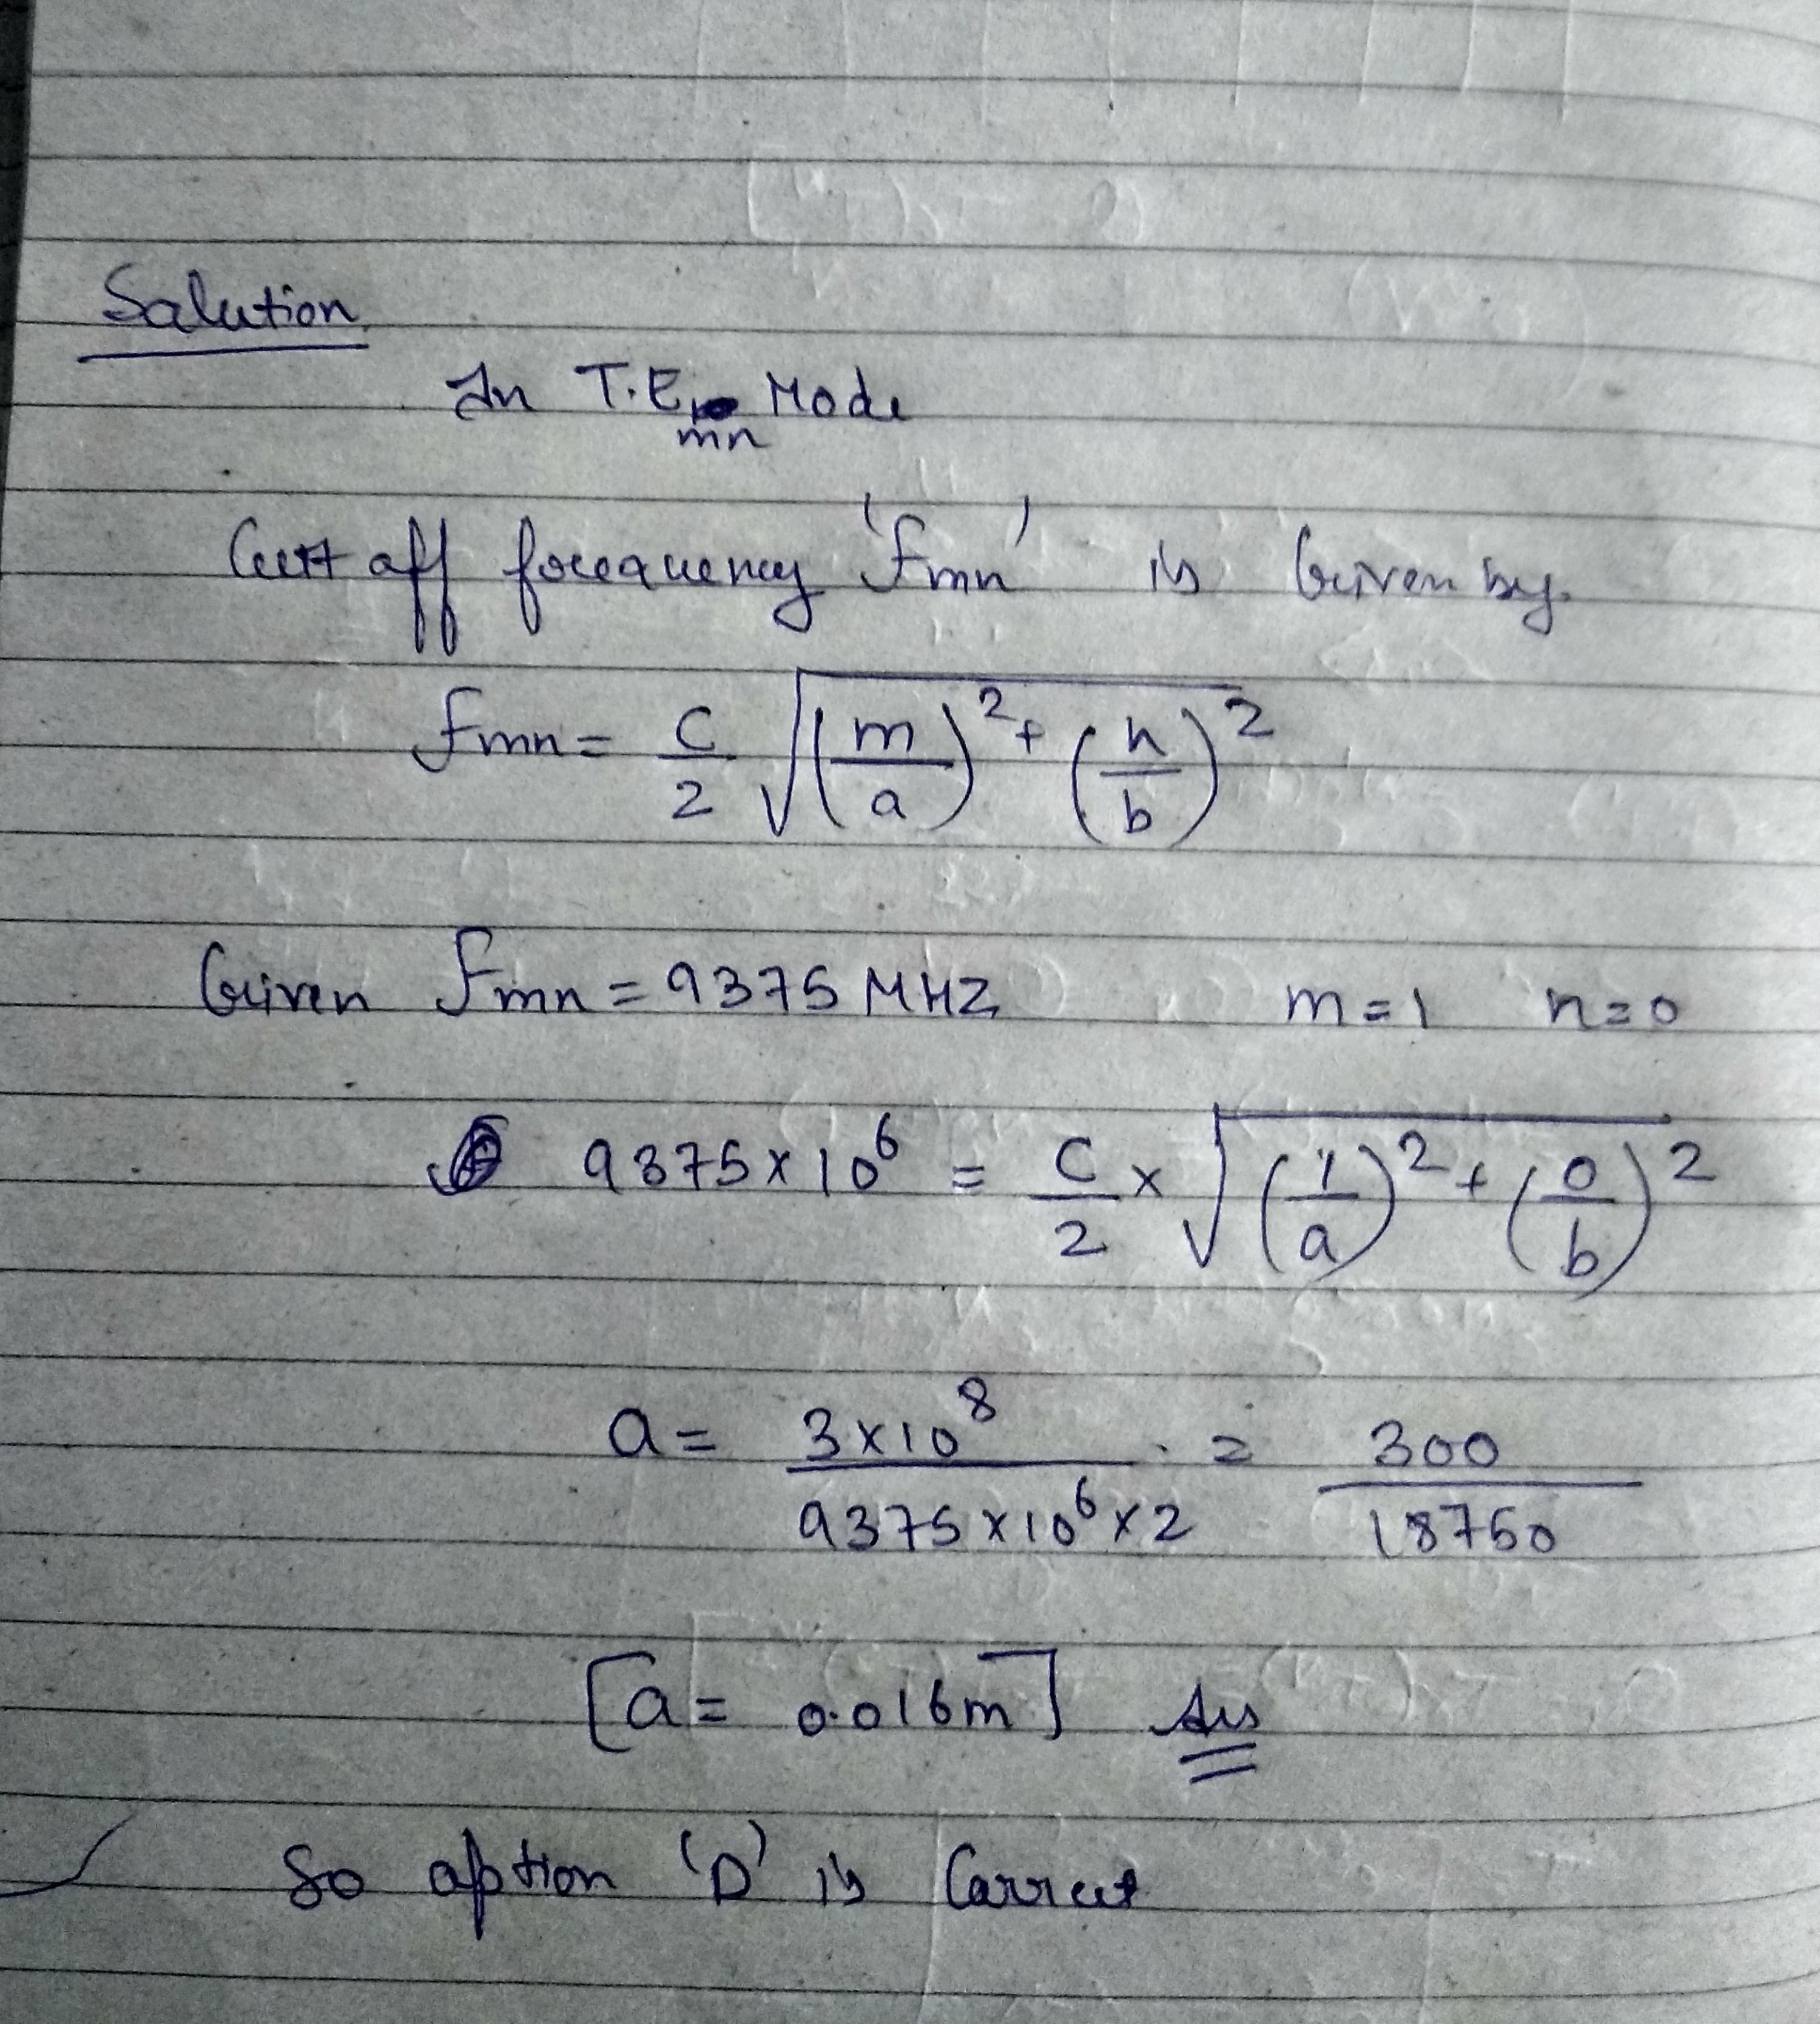 Salution
In T.E mn Mode
Cutt aff frequency 'fmn' is Given by.
fmn = C/2 √(m/a)² + (n/b)²
Given fmn = 9375 MHZ m=1 n=0
9375×10⁶ = C/2 × √(1/a)² + (0/b)²
a = 3×10⁸/9375×10⁶×2 = 300/18750
[a = 0.016m] Ans
So aption 'D' is Carrect